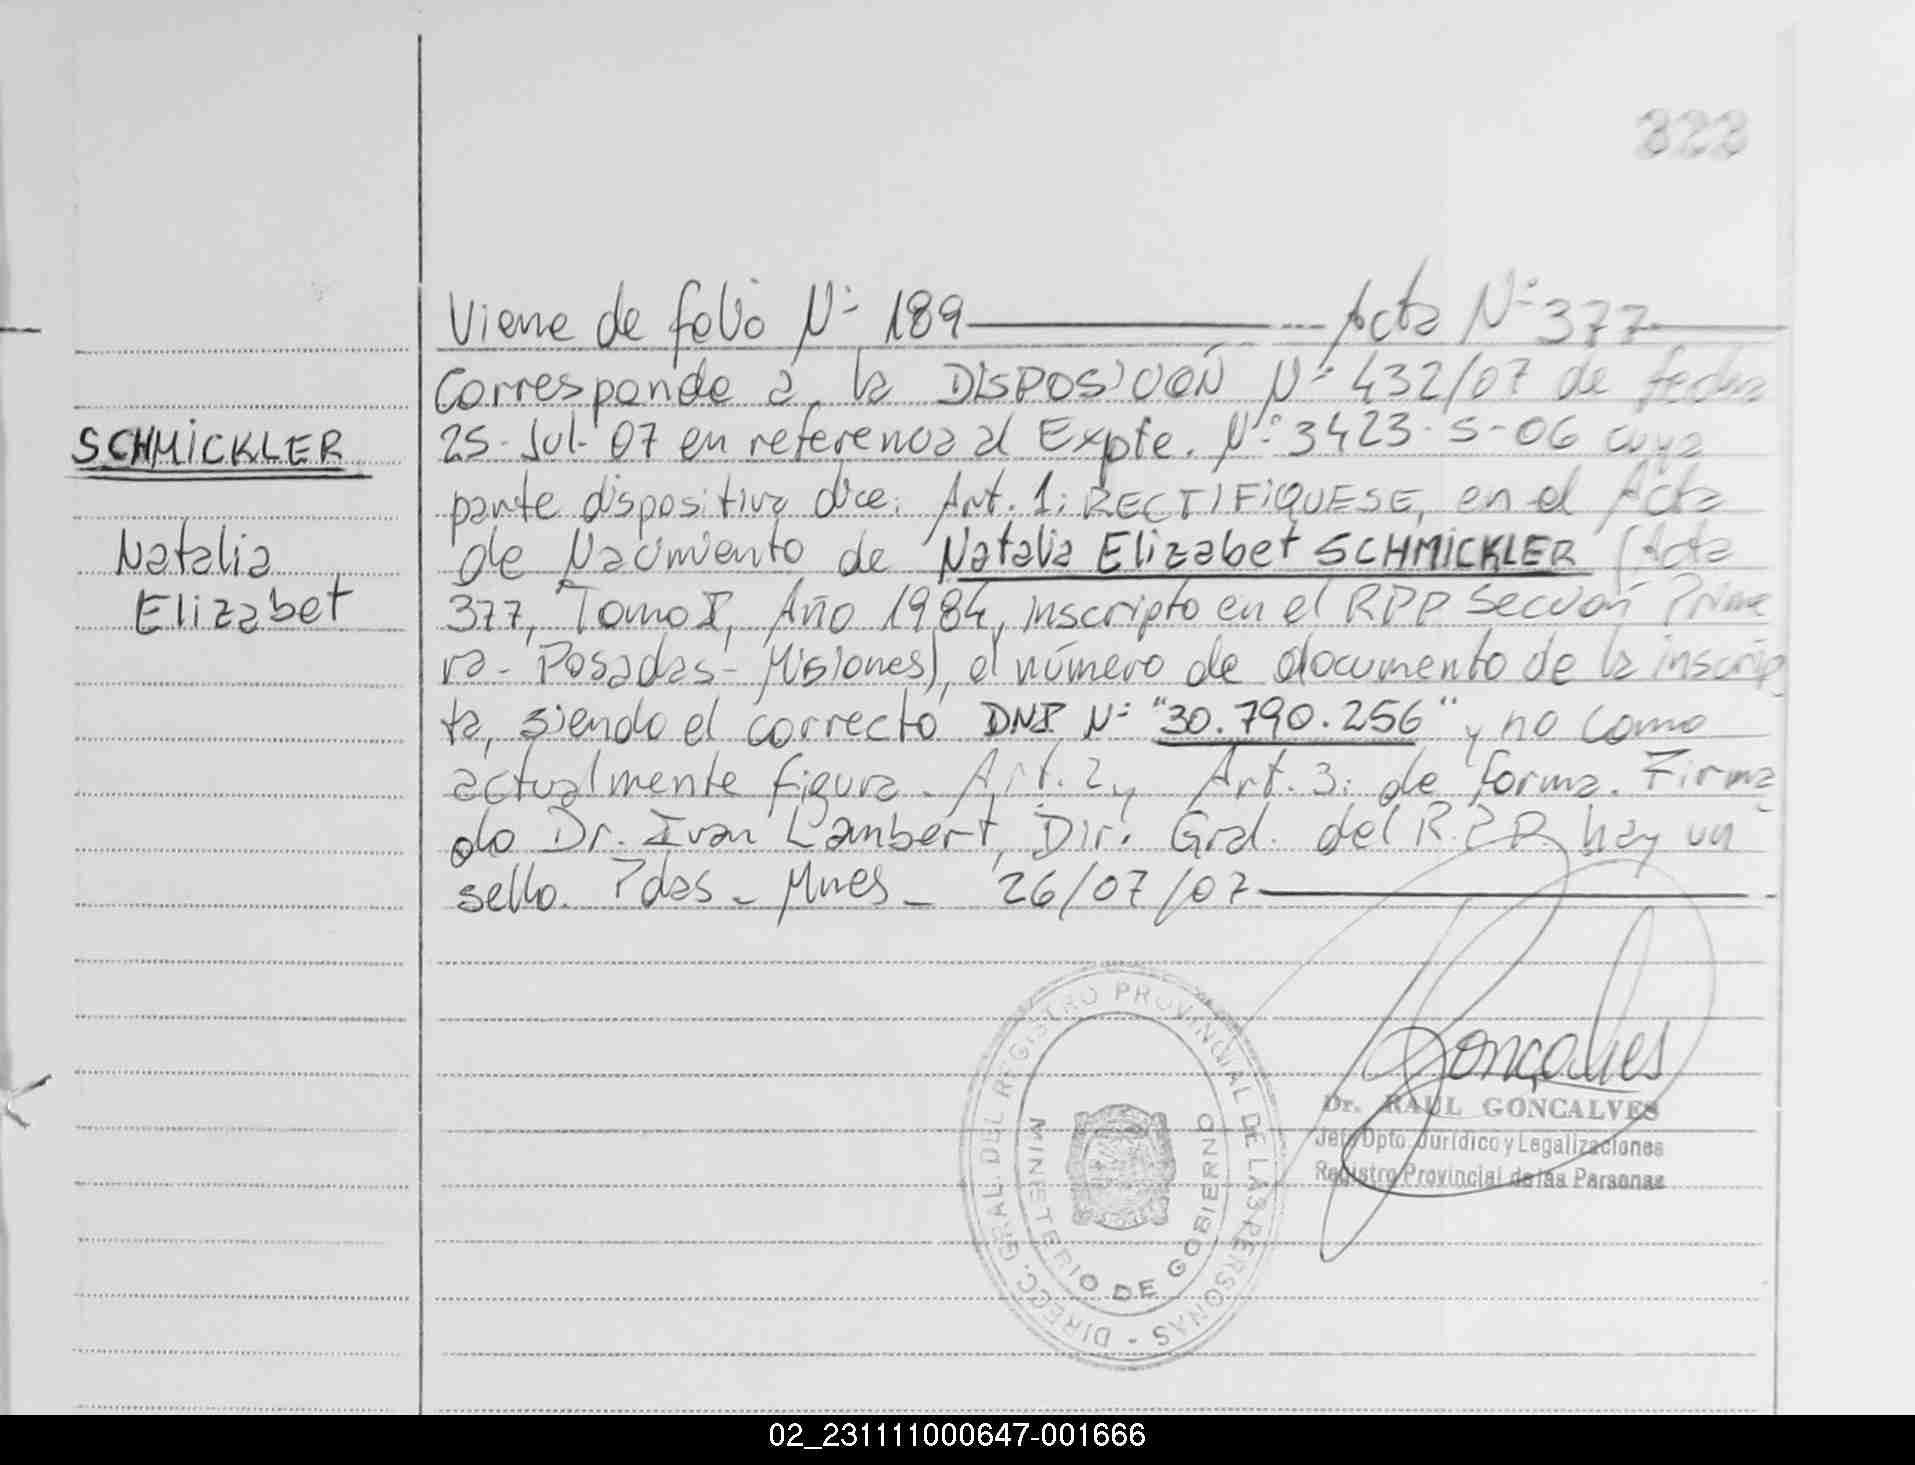 323
Viene de folio Nº 189 Acta Nº 377
Corresponde a la DISPOSICIÓN Nº 432/07 de fecha
SCHMICKLER
25-Jul-07 en referencia al Expte. Nº 3423-S-06 cuya
parte dispositiva dice: Art. 1: RECTIFIQUESE, en el Acta
Natalia
de Nacimiento de Natalia Elizabet SCHMICKLER (Acta
Elizabet
377, Tomo I, Año 1984, inscripto en el RPP Sección Prime
ra - Posadas - Misiones), el número de documento de la inscrip
ta, siendo el correcto DNI Nº "30.790.256" y no como
actualmente figura. Art. 2 y Art. 3: de forma. Firma
do Dr. Ivan Lambert, Dir. Gral. del R.P.P. hay un
sello. Pdas - Mnes - 26/07/07
DIRECC. GRAL. DEL REGISTRO PROVINCIAL DE LAS PERSONAS -
MINISTERIO DE GOBIERNO
Gonçalves
Dr. RAUL GONÇALVES
Jefe Dpto. Jurídico y Legalizaciones
Registro Provincial de las Personas
02_231111000647-001666